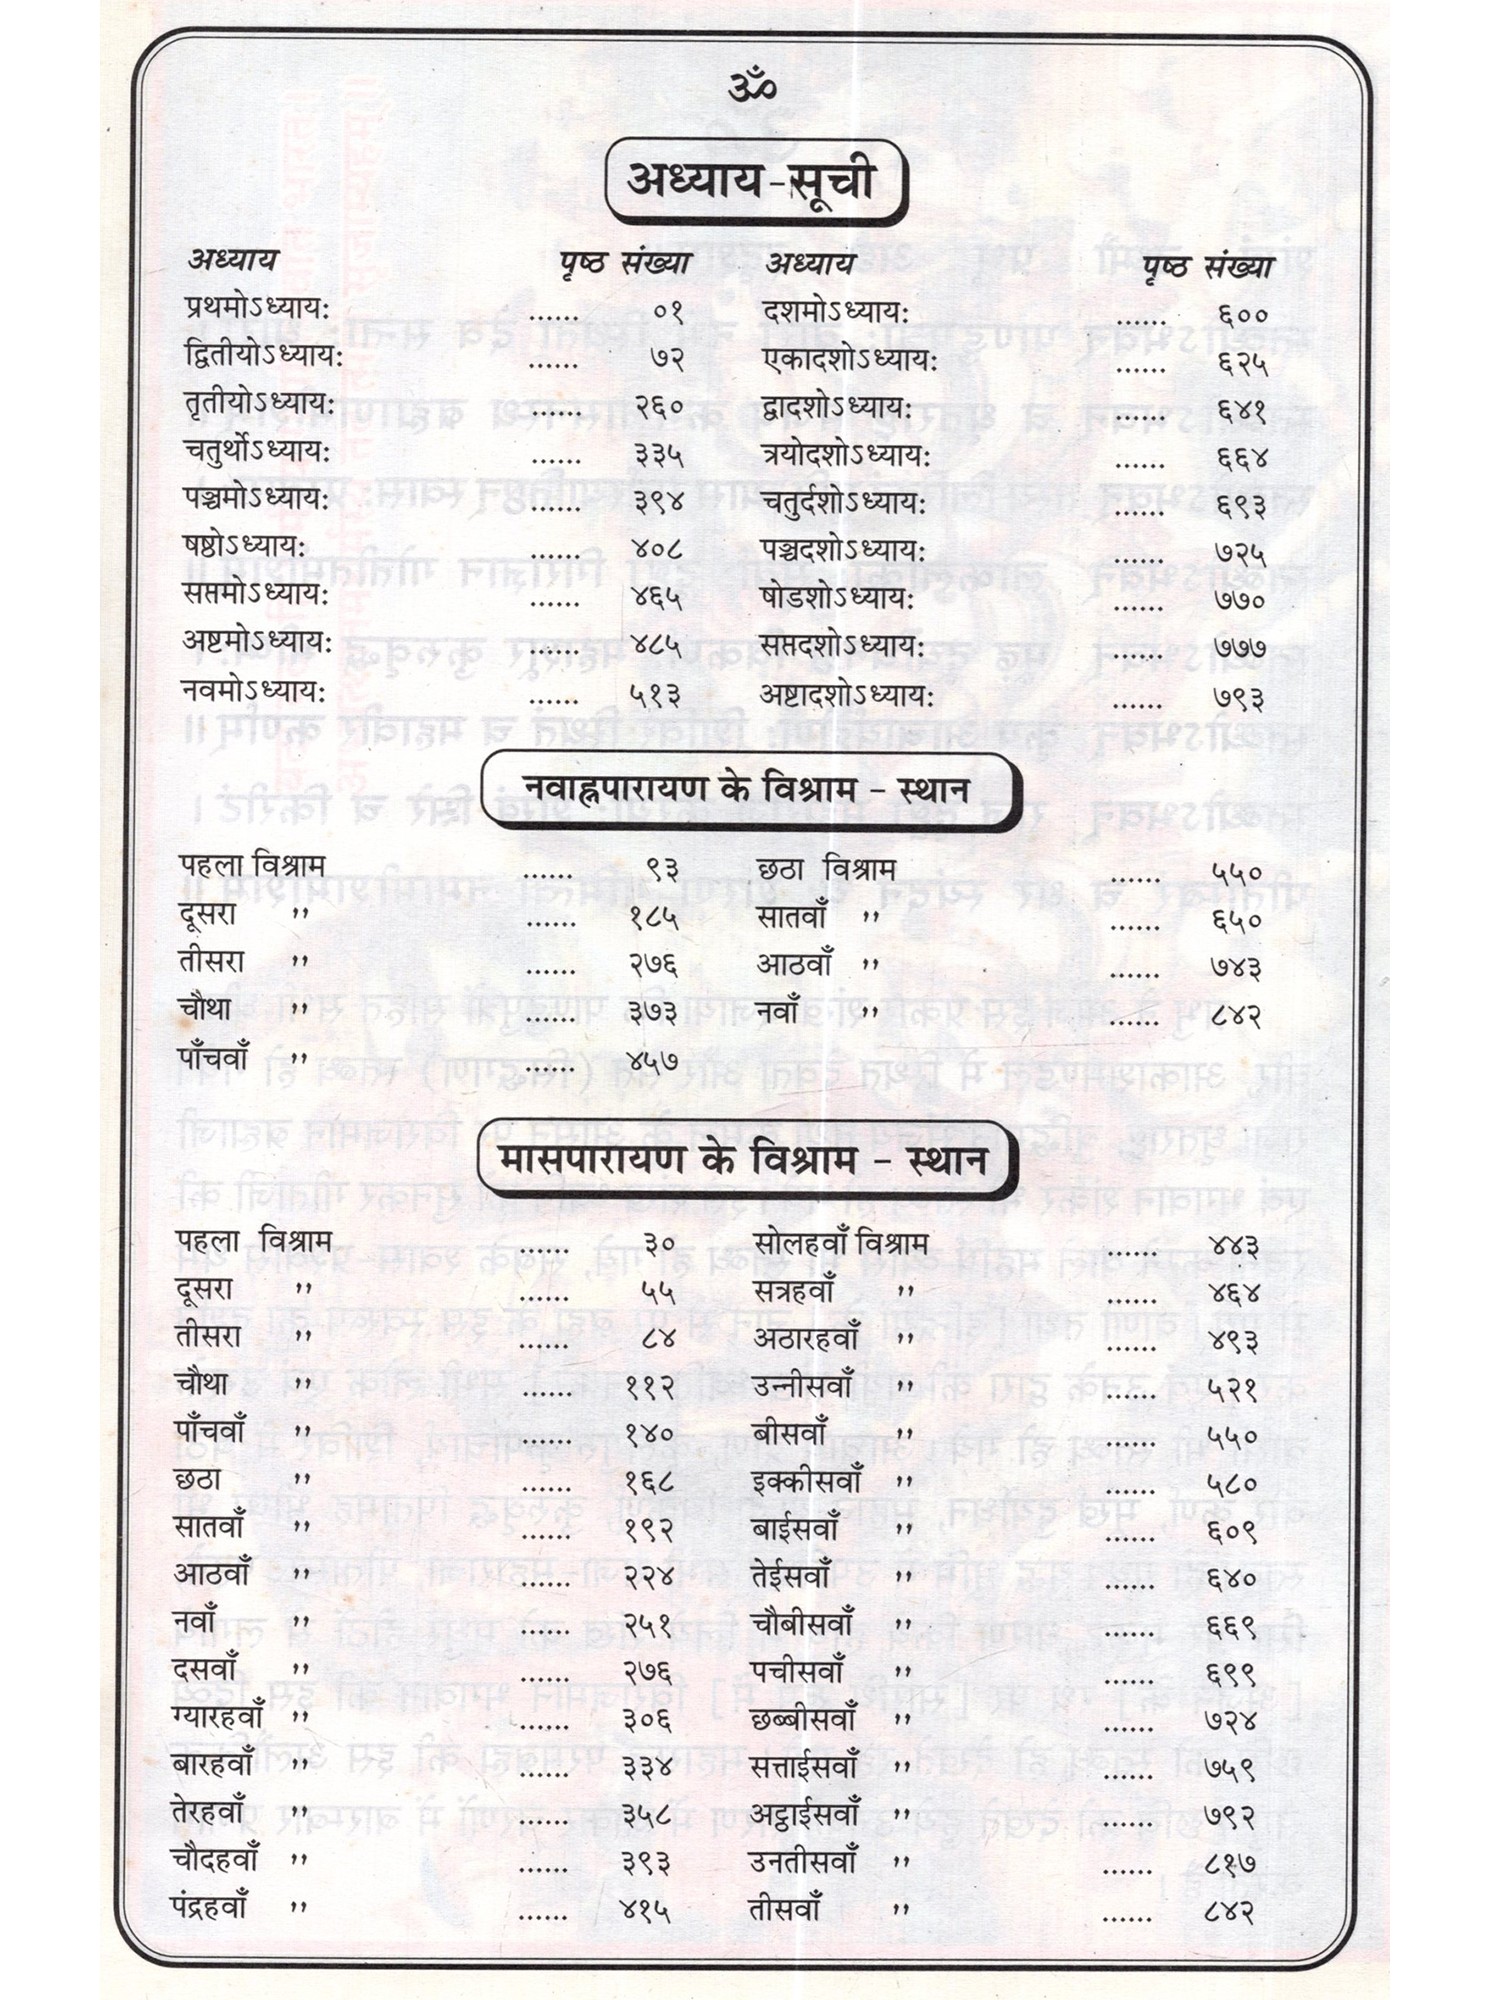 ॐ
अध्याय-सूची
अध्याय पृष्ठ संख्या अध्याय पृष्ठ संख्या
प्रथमोऽध्याय: ...... ०१ दशमोऽध्याय: ...... ६००
द्वितीयोऽध्याय: ...... ७२ एकादशोऽध्याय: ...... ६२५
तृतीयोऽध्याय: ...... २६० द्वादशोऽध्याय: ...... ६४१
चतुर्थोऽध्याय: ...... ३३५ त्रयोदशोऽध्याय: ...... ६६४
पञ्चमोऽध्याय: ...... ३९४ चतुर्दशोऽध्याय: ...... ६९३
षष्ठोऽध्याय: ...... ४०८ पञ्चदशोऽध्याय: ...... ७२५
सप्तमोऽध्याय: ...... ४६५ षोडशोऽध्याय: ...... ७७०
अष्टमोऽध्याय: ...... ४८५ सप्तदशोऽध्याय: ...... ७७७
नवमोऽध्याय: ...... ५१३ अष्टादशोऽध्याय: ...... ७९३
नवाह्नपारायण के विश्राम - स्थान
पहला विश्राम ...... ९३ छठा विश्राम ...... ५५०
दूसरा ,, ...... १८५ सातवाँ ,, ...... ६५०
तीसरा ,, ...... २७६ आठवाँ ,, ...... ७४३
चौथा ,, ...... ३७३ नवाँ ,, ...... ८४२
पाँचवाँ ,, ...... ४५७
मासपारायण के विश्राम - स्थान
पहला विश्राम ...... ३० सोलहवाँ विश्राम ...... ४४३
दूसरा ,, ...... ५५ सत्रहवाँ ,, ...... ४६४
तीसरा ,, ...... ८४ अठारहवाँ ,, ...... ४९३
चौथा ,, ...... ११२ उन्नीसवाँ ,, ...... ५२१
पाँचवाँ ,, ...... १४० बीसवाँ ,, ...... ५५०
छठा ,, ...... १६८ इक्कीसवाँ ,, ...... ५८०
सातवाँ ,, ...... १९२ बाईसवाँ ,, ...... ६०९
आठवाँ ,, ...... २२४ तेईसवाँ ,, ...... ६४०
नवाँ ,, ...... २५१ चौबीसवाँ ,, ...... ६६९
दसवाँ ,, ...... २७६ पचीसवाँ ,, ...... ६९९
ग्यारहवाँ ,, ...... ३०६ छब्बीसवाँ ,, ...... ७२४
बारहवाँ ,, ...... ३३४ सत्ताईसवाँ ,, ...... ७५९
तेरहवाँ ,, ...... ३५८ अट्ठाईसवाँ ,, ...... ७९२
चौदहवाँ ,, ...... ३९३ उनतीसवाँ ,, ...... ८१७
पंद्रहवाँ ,, ...... ४१५ तीसवाँ ,, ...... ८४२